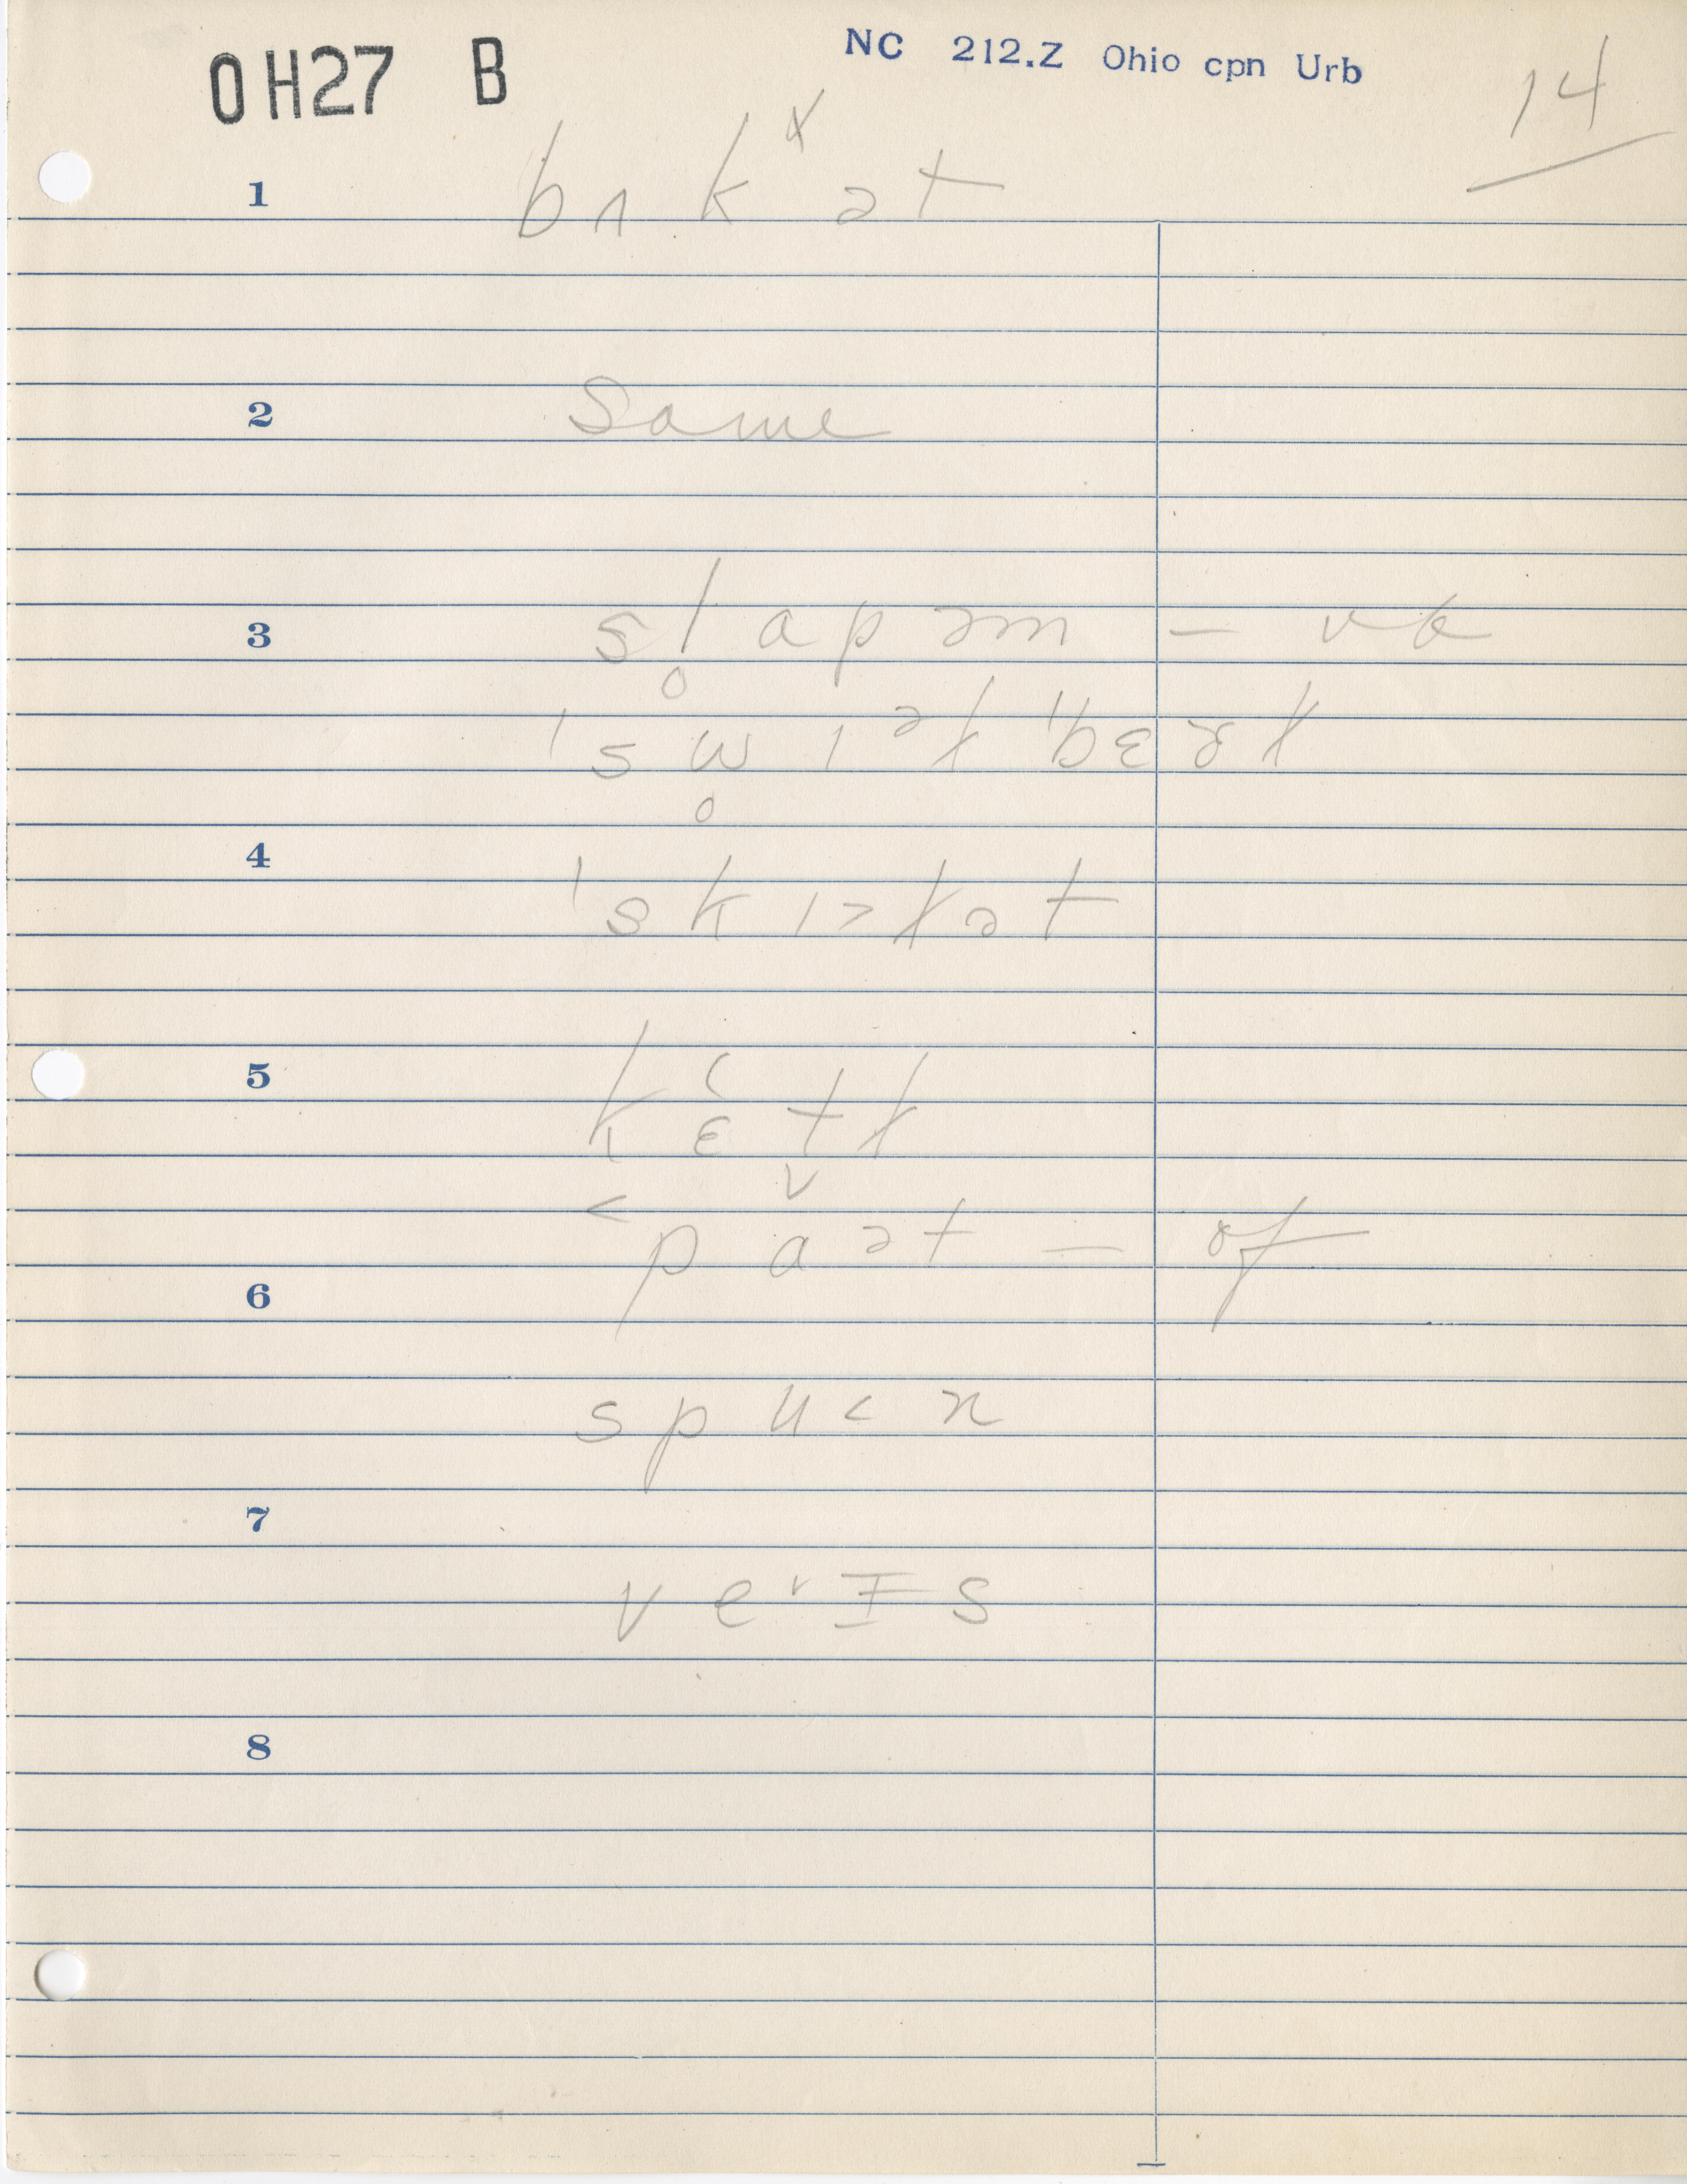 OH27 B
NC 212.Z Ohio cpn Urb
14
1 bʌkˣət
2 Same
3 sl̥apəm – vb
ˈsw̥ɪəɫ ˈbɛɚɫ
4 ˈskɪ˃ɫət
5 kɛ˂t̬ɫ
6 ˂paət – of
spu˂n
7 veᵛɪs
8